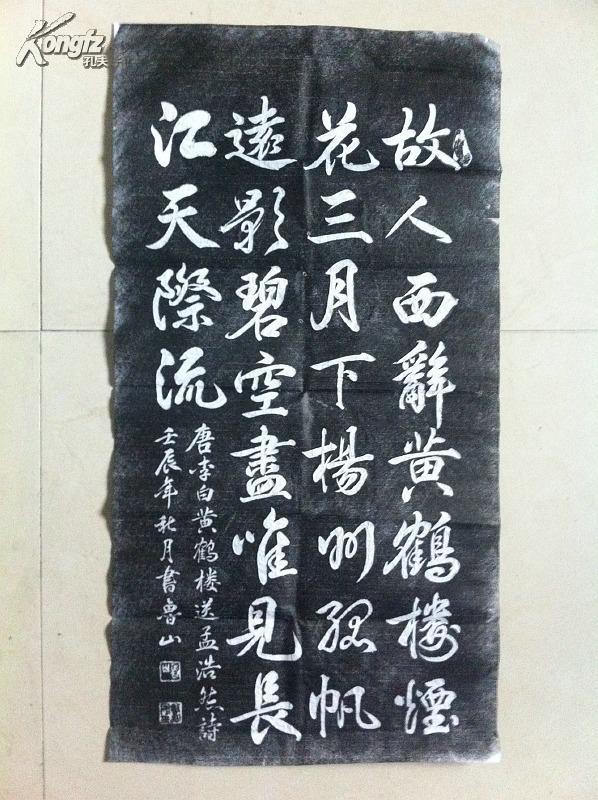 故人西辭黄鶴楼煙
花三月下楊州孤帆
遠影碧空盡唯見長
江天際流
唐李白黄鹤楼送孟浩然詩
壬辰年秋月書魯山
Kongfz
孔夫